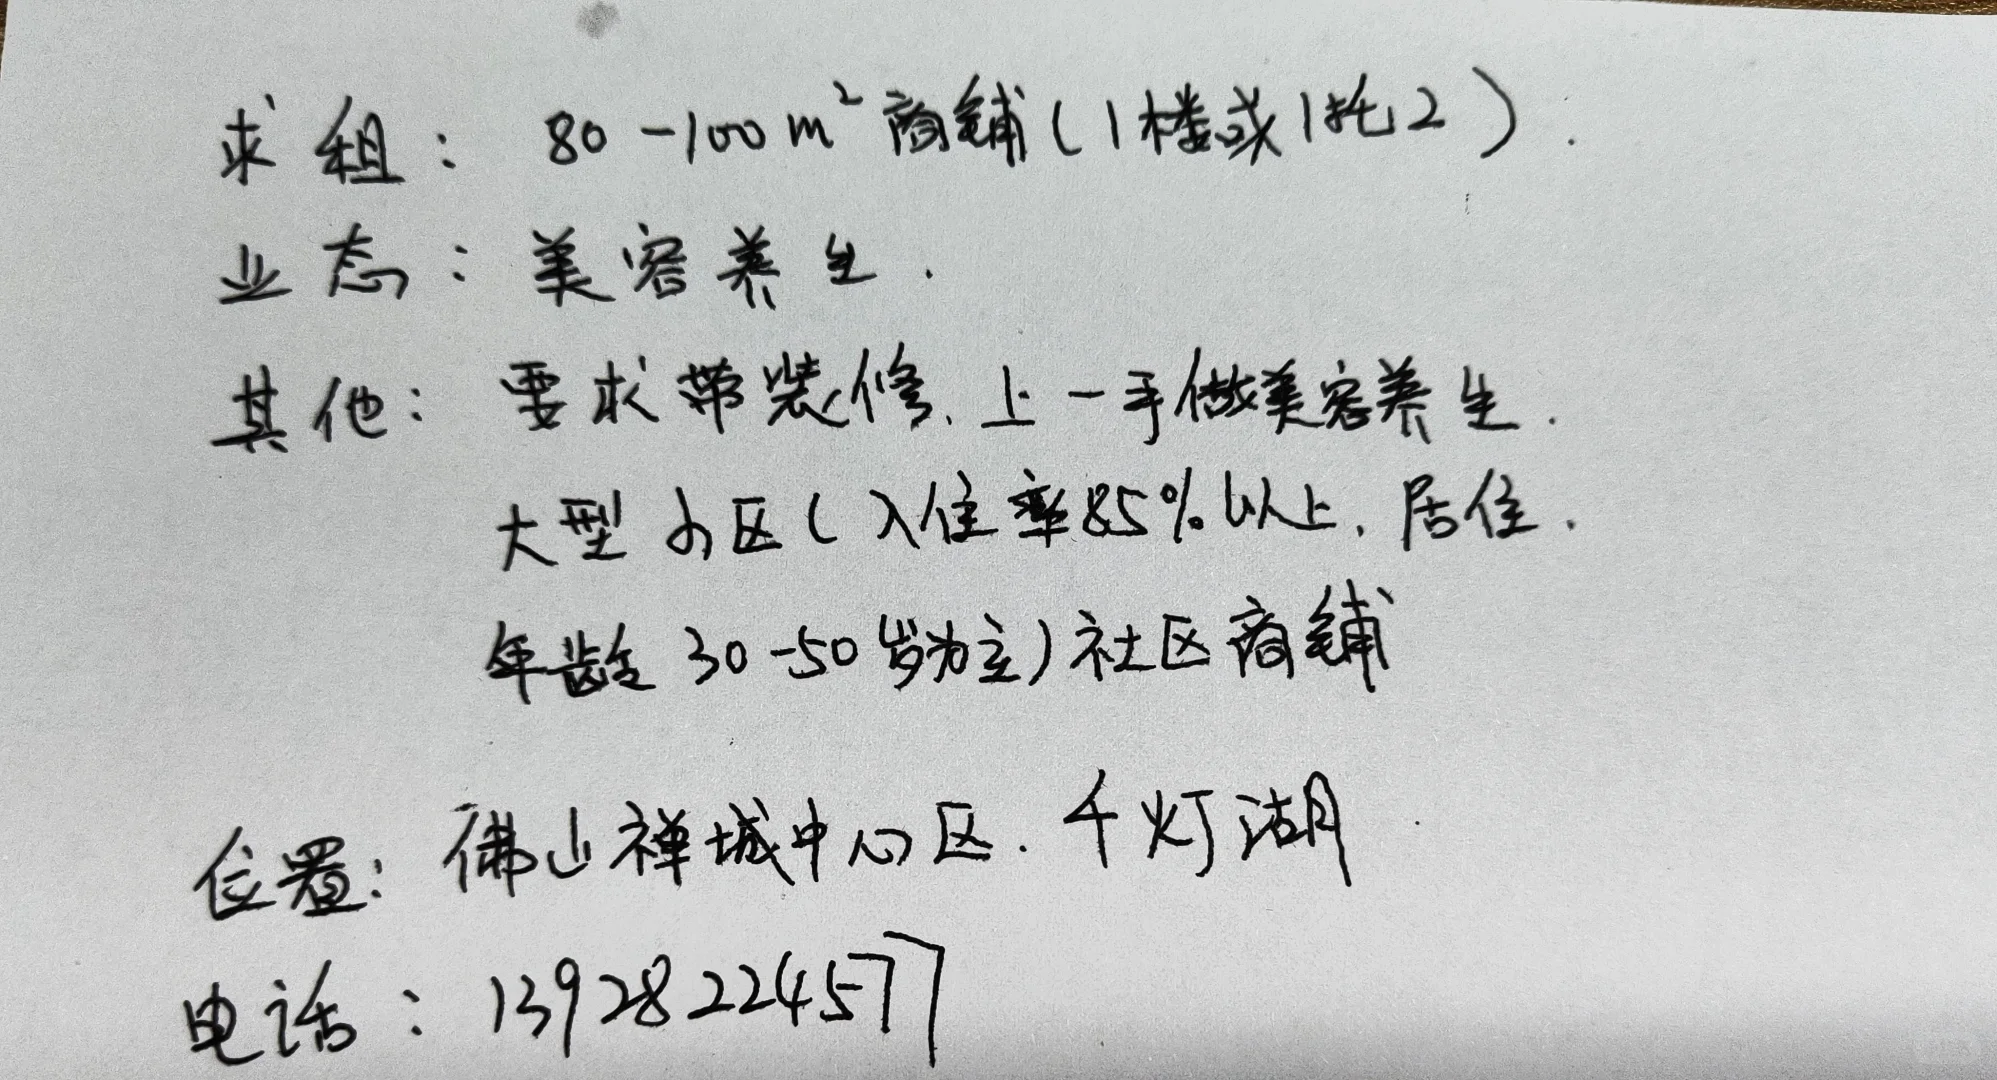 求租：80-100m²商铺(1楼或1托2).
业态：美容养生.
其他：要求带装修、上一手做美容养生.
大型小区(入住率85%以上、居住.
年龄30-50岁为主)社区商铺
位置：佛山禅城中心区.千灯湖
电话：13928224577